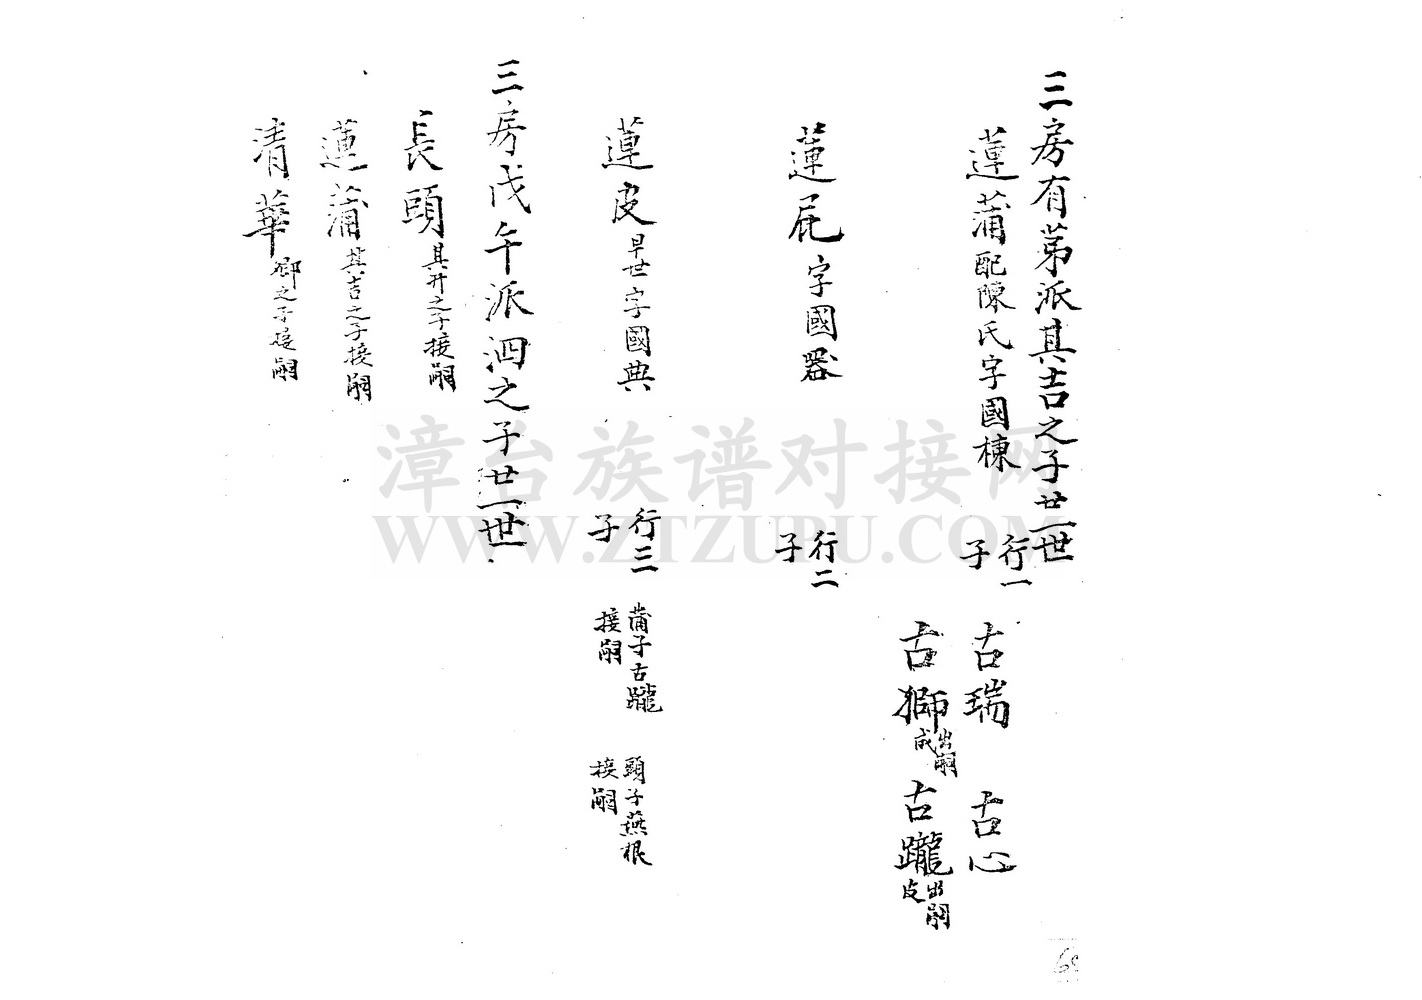 三房有苐派其吉之子廿一世
蓮蒲配陳氏字國棟 行一
子 古瑞 古心
古獅出嗣成 古躘出嗣皮
蓮屁字國器 行二
子
蓮皮早世字國典 行三
子 蒲子古躘接嗣 頭子燕根接嗣
三房戊午派泗之子廿一世
長頭其开之子接嗣
蓮蒲其吉之子接嗣
清華 之子 嗣
漳台族谱对接网
WWW.ZTZUPU.COM